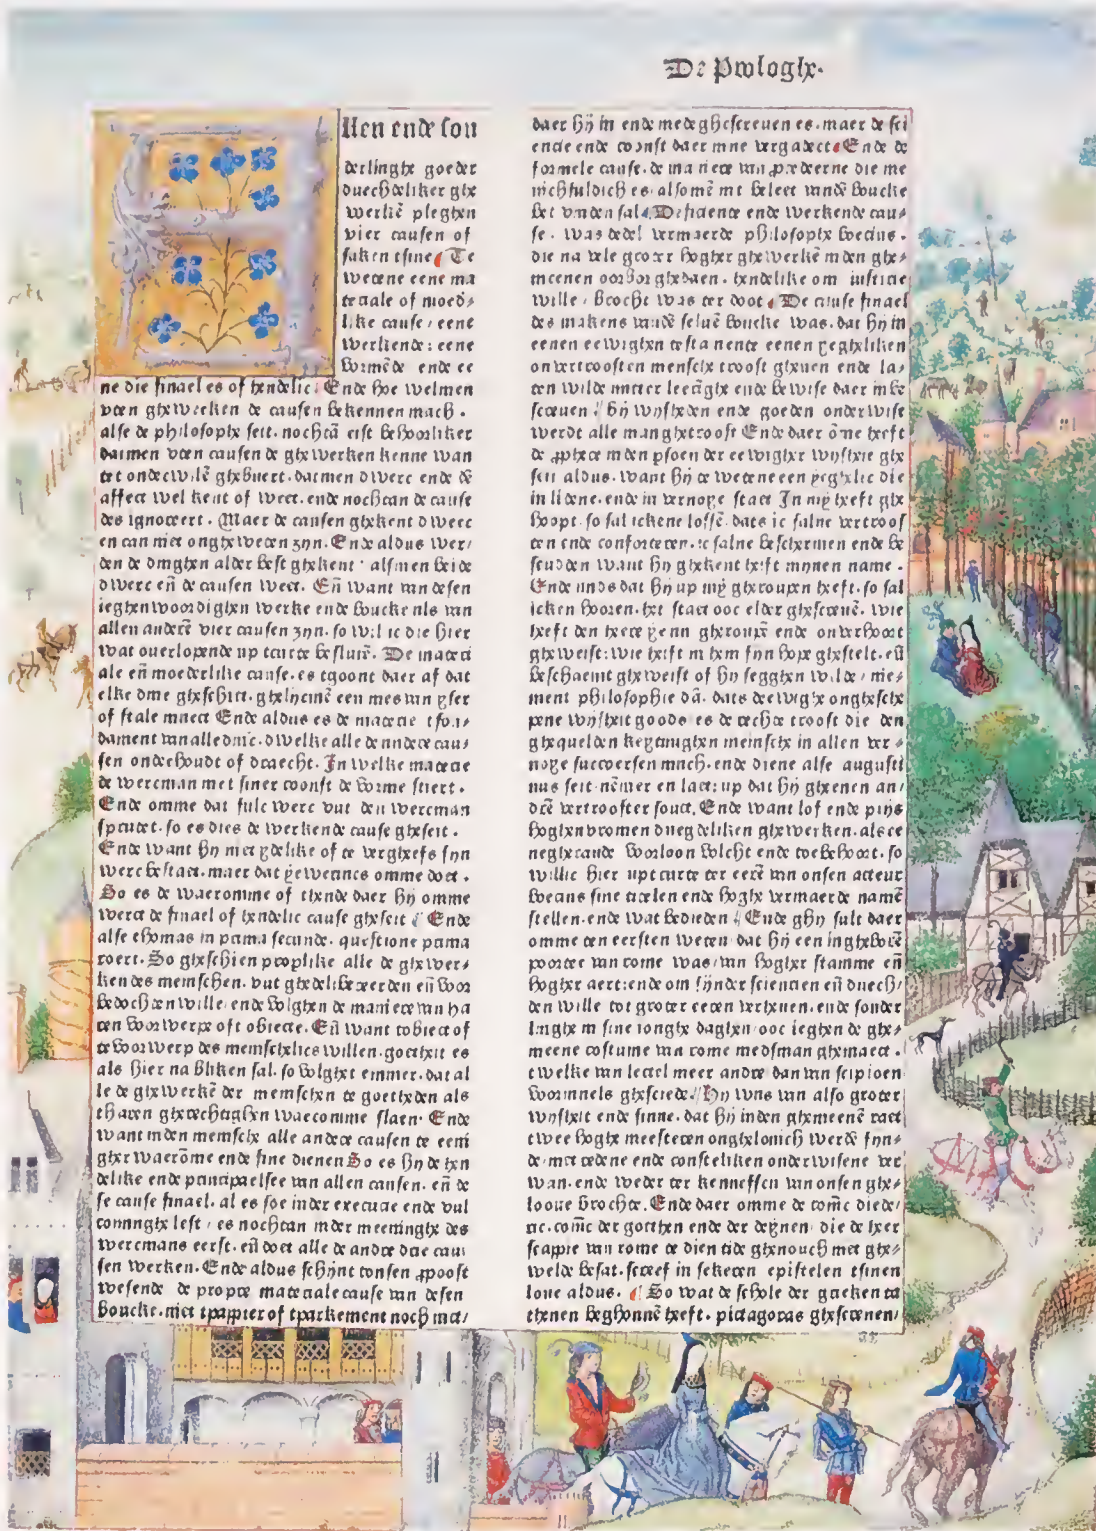 De Prologhe.
Allen ende son
derlinghe goeder
duechdeliker ghe
werkē pleghen
vier causen of
saken tsine Te
wetene eene ma
teriale of moed⸗
like cause / eene
werkende : eene
vormēde ende ee
ne die finael es of hendelic. Ende hoe welmen
vten ghewercken de causen bekennen mach .
alse de philosophe seit. nochtā eist behoorliker
datmen vten causen de ghewerken kenne wan
tet ondertwilē ghebuert. datmen dwerc ende dē
affect wel kent of weet. ende nochtan de cause
des ignoreert . Maer de causen ghekent dwerc
en can niet onghe weten zijn. Ende aldus wer/
den de dinghen alder best ghekent · alsmen beide
dwerc eñ de causen weet. Eñ want van desen
ieghenwoordighen werke ende boucke als van
allen anderē vier causen zijn. so wil ic die hier
wat ouerlopende up tcurte besluitē. De materi
ale eñ moederlike cause. es tgoont daer af dat
elke dinc gheschiet. ghelijcmē een mes van yser
of stale maect Ende aldus es de materie tfon⸗
dament van alle dinc. dwelke alle de andere cau⸗
sen onderhoudt of draecht. In welke materie
de wercman met siner coonst de vorme stiert .
Ende omme dat sulc werc vut den wercman
spruutet. so es dies de werkende cause gheseit .
Ende want hij niet ydelike of te vergheefs sijn
werc bestaet. maer dat yewerincs omme doet .
So es de waeromme of thende daer hij omme
werct de finael of hendelic cause gheseit Ende
alse thomas in prima secunde. questione prima
roert. So gheschien proprlike alle de ghewer⸗
ken des menschen. vut ghedelibereerden eñ voor
bedochten wille / ende volghen de maniere van ha
ren voorwerpe oft obiecte. Eñ want tobiect of
tvoorwerp des menschelics willen. goetheit es
als hier na bliken sal. so volghet emmer. dat al
le de ghewerkē der menschen te goetheden als
tharen gherechtighen waeromme slaen. Ende
want inden mensche alle andere causen te eeni
gher waerōme ende fine dienen So es hij de hen
delike ende principaelste van allen causen. eñ de
se cause finael. al es soe inder executie ende vul
comnnghe lest / es nochtan inder meeninghe des
wercmans eerst. eñ doet alle de andre drie cau
sen werken. Ende aldus schijnt tonsen ꝓpooste
wesende de propre materiale cause van desen
boucke. niet tpappier of tparkement noch met/
daer hij in ende mede ghescreuen es. maer de sci
encie ende coonst daer inne vergadert. Ende de
formele cause. de maniere van ꝓcedeerne die me
nichfuldich es. alsomē int beleet vandē boucke
bet vinden sal. Defficiente ende werkende cau⸗
se . was dedel vermaerde philosophe boecius .
die na vele groter hogher ghewerkē inden ghe⸗
meenen oorborghedaen. hendelike om iusticie
wille / brocht was ter doot. De cause finael
des makens vandē seluē boucke was. dat hij in
eenen eewighen testamente eenen yeghelikien
onvertroosten mensche troost gheuen ende la⸗
ten wilde mitter leeringhe ende bewise daer in be
screuen . Bij wijsheden ende goeden onderwise
werdt alle man ghetroost Ende daer ōme heeft
de ꝓphete inden psoen der eewigher wijsheit ghe
seit aldus. want hij te wetene een yeghelic die
in lidene. ende in vernoye staet In mij heeft ghe
hoopt. so sal ickene lossē. dats ic salne vertroos
ten ende conforteren. ic salne beschermen ende be
scudden want hij ghekent heeft mijnen name .
Ende mids dat hij up mij gheroupen heeft. so sal
icken hooren. het staet ooc elder ghescreuē. wie
heeft den heere yenn gheroupē ende onverhoort
gheweist : wie heift in hem sijn hope ghestelt. eñ
beschaemt gheweist of hij segghen wilde / nie⸗
ment philosophie dā. dats de ewighe onghesche
pene wijsheit goods es de rechte troost die den
ghequelden keytiuighen meinsche in allen ver ⸗
noye succoersen mach. ende diene alse augusti
nus seit. nēmer en laet. up dat hij ghenen an/
drē vertrooster souct. Ende want lof ende prijs
hoghen vromen duegdeliken ghewerken. als ee
neghetaude voorloon volcht ende toebehoort. so
willic hier upt curte ter eerē van onsen acteur
boecius sine titelen ende hoghe vermaerde namē
stellen. ende wat bedieden Ende ghij sult daer
omme ten eersten weten dat hij een ingheborē
poorter van rome was / van hogher stamme eñ
hogher aert : ende om sijnder sciencien eñ duech/
den wille tot groter eeren verheuen. ende sonder
linghe in sine ionghe daghen / ooc ieghen de ghe⸗
meene costume van rome raedsman ghemaect .
twelke van lettel meer andre dan van scipioen
voorinaels ghesciede. Hij was van also groter
wijsheit ende sinne. dat hij inden ghemeenē raet
twee hoghe meesteren onghelouich werdē sijn⸗
de / met redene ende consteliken onderwisene ver
wan. ende weder ter kennessen van onsen ghe⸗
looue brochte. Ende daer omme de comē diede⸗
ric. comē der gotthen ende der deynen / die de heer
scappie van rome te dien tide ghenouch met ghe⸗
welde besat. screef in sekeren epistelen tsinen
loue aldus. So wat de schole der grieken ta
thenen beghonnē heeft. pictagoras ghescrenen/